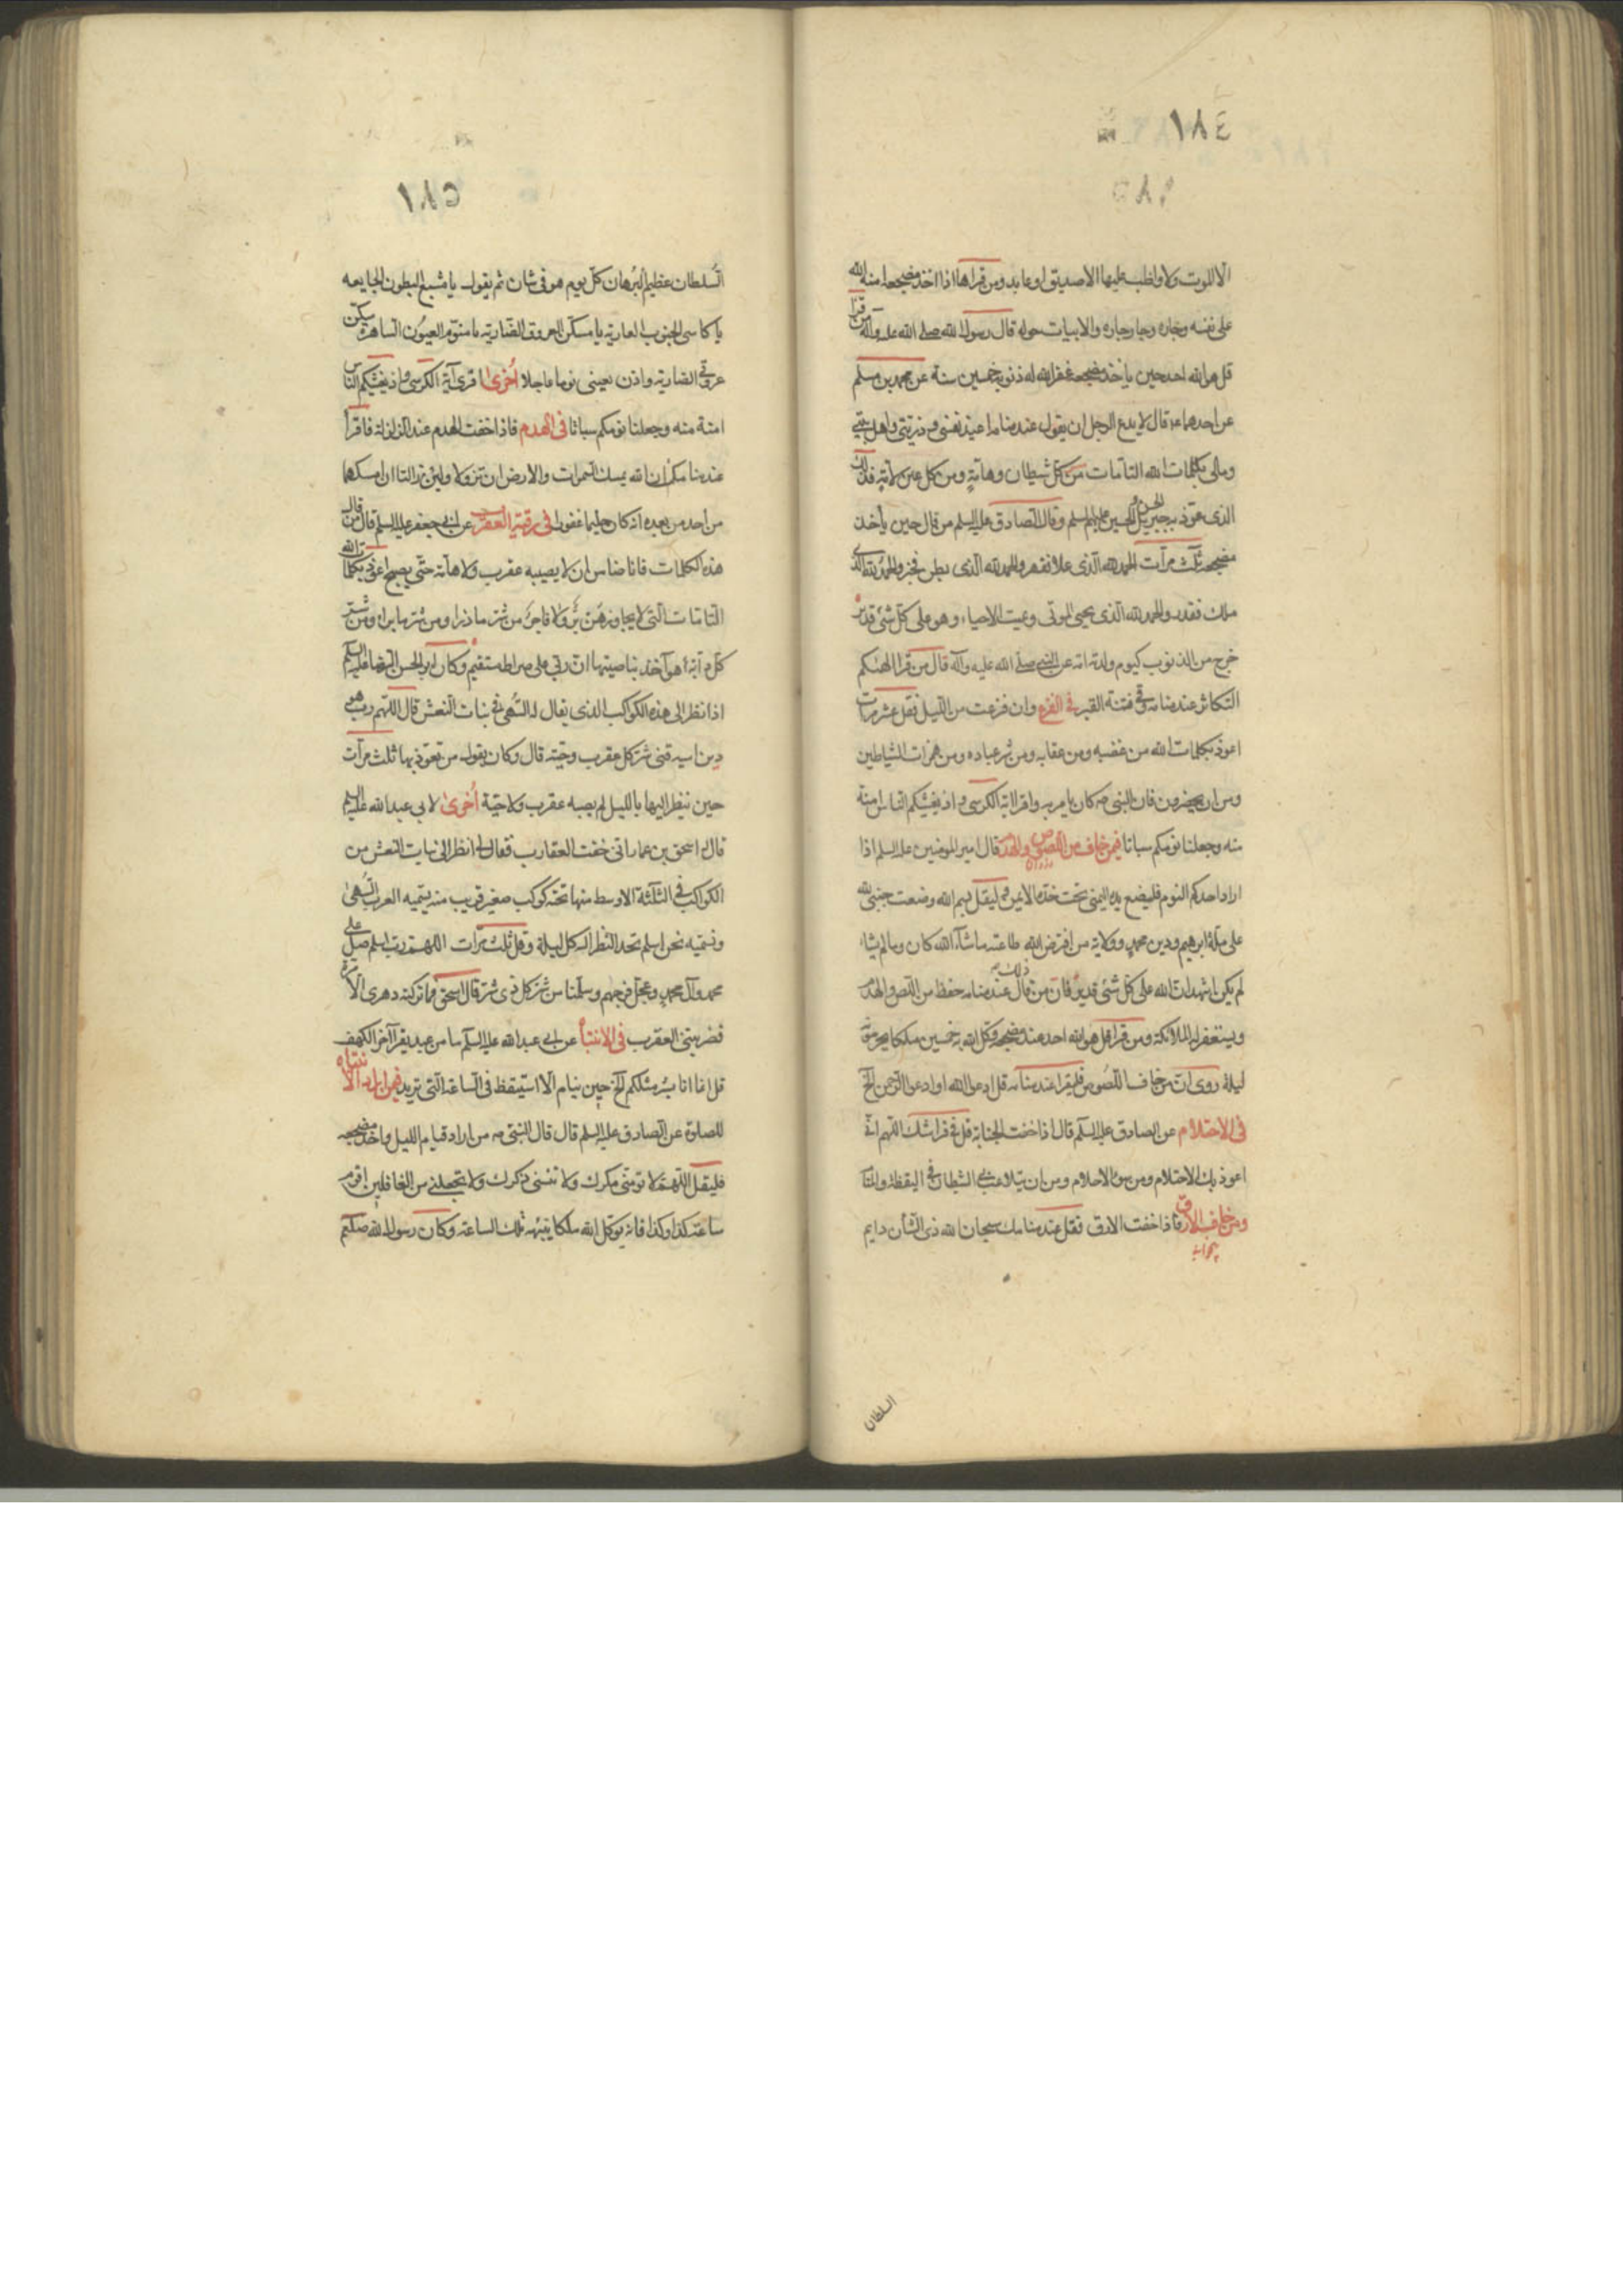 ١٨٤
١٨٥
الا الموت ولا يواظب عليها الا صديق او عابد ومن قراها اذا اخذ مضجعه امنه الله
على نفسه وجاره وجار جاره والابيات حوله قال رسول الله صلى الله عليه وآله من قرا
قل هو الله احد حين ياخذ مضجعه غفر الله له ذنوب خمسين سنة عن محمد بن مسلم
عن احدهما ع قال لا يدع الرجل ان يقول عند منامه اعيذ نفسى وذريتى واهل بيتى
ومالى بكلمات الله التامات من كل شيطان وهامة ومن كل عين لامة فذلك
الذى عوذ به جبرئيل الحسن و الحسين عليهم السلم وقال الصادق عليه السلم من قال حين يأخذ
مضجعه ثلث مرآت الحمد لله الذى علا فقهر والحمد لله الذى بطن فخبر والحمد لله الذى
ملك فقدر والحمد لله الذى يحيى الموتى ويميت الاحياء وهو على كل شئ قدير
خرج من الذنوب كيوم ولدته امه عن النبى صلى الله عليه وآله قال من قرا الهيكم
التكاثر عند منامه وقى فتنة القبر فى الفزع وان فزعت من الليل فقل عشر مرات
اعوذ بكلمات الله من غضبه ومن عقابه ومن شر عباده ومن همزات الشياطين
ومن ان يحضرون فان النبى ص كان يامر به واقرا اية الكرسى و اذ يغشيكم النعاس امنة
منه وجعلنا نومكم سباتا فيمن خاف من اللصوص والهدم قال امير المؤمنين عليه السلم اذا
اراد احدكم النوم فليضع يده اليمنى تحت خده الايمن و ليقل بسم الله وضعت جنبى لله
على ملة ابرهيم ودين محمد وولاية من افترض الله طاعته ما شآء الله كان وما لم يشاء
لم يكن اشهد ان الله على كل شئ قدير فان من قال ذلك عند منامه حفظ من اللص والهدم
ويستغفر له الملائكة ومن قرا قل هو الله احد عند مضجعه وكل الله به خمسين ملكا يحرسونه
ليلة روى ان من خاف اللصوص فليقرا عند منامه قل ادعوا الله او ادعوا الرحمن الخ
فى الاحتلام عن الصادق عليه السلم قال اذا خفت الجنابة قل فى فراشك اللهم انى
اعوذ بك من الاحتلام ومن سوء الاحلام ومن ان يتلاعب بى الشيطان فى اليقظة والمنام
ومن خاف الارق فاذا خفت الارق فقل عند منامك سبحان الله ذى الشأن دايم
السلطان
١٨٥
السلطان عظيم البرهان كل يوم هو فى شان ثم يقول يا مشبع البطون الجايعه
يا كاسى الجنوب العارية يا مسكن العروق الضاربة يا منوم العيون الساهرة سكن
عروقى الضاربة واذن لعينى نوما عاجلا اُخرى اقرى آية الكرسى و اذ يغشيكم النعاس
امنة منه وجعلنا نومكم سباتا فى الهدم فاذا خفت الهدم عند الزلزلة فاقرأ
عند منامك ان الله يمسك السموات والارض ان تزولا ولئن زالتا ان امسكهما
من احد من بعده انه كان حليما غفورا فى رقية العقرب عن ابى جعفر عليه السلم قال من قال
هذه الكلمات فانا ضامن ان لا يصيبه عقرب ولا هامة حتى يصبح اعوذ بكلمات الله
التامات التى لا يجاوزهن بر ولا فاجر من شر ما ذرا ومن شر ما برا ومن شر
كل دابة هو آخذ بناصيتها ان ربى على صراط مستقيم وكان ابو الحسن الرضا عليه السلم
اذا نظر الى هذه الكواكب الذى يقال له السهى فى بنات النعش قال اللهم رب هو
دين اسيه قنى شر كل عقرب وحية قال وكان يقول من تعوذ بها ثلث مرآت
حين ينظر اليها بالليل لم يصبه عقرب ولا حية اُخرى لابى عبد الله عليه السلم
قال اسحق بن عمار انى خفت العقارب فقال لى انظر الى بنات النعش من
الكواكب فى الثلثة الاوسط منها تحته كوكب صغير قريب منه يسميه العرب السهى
ونسميه نحن اسلم تحد النظر اليه كل ليلة وقل ثلث مرآت اللهم رب اسلم صل على
محمد وآل محمد وعجل فرجهم وسلمنا من شر كل ذى شر قال اسحق فما تركته دهرى الا مرة
فضربتنى العقرب فى الانتباه عن ابى عبد الله عليه السلم ما من عبد يقرا آخر الكهف
قل انما انا بشر مثلكم الخ حين ينام الا استيقظ فى الساعة التى يريد فيمن اراد الانتباه
للصلوة عن الصادق عليه السلم قال قال النبى ص من اراد قيام الليل واخذ مضجعه
فليقل اللهم لا تومنى مكرك ولا تنسنى ذكرك ولا تجعلنى من الغافلين اقوم
ساعة كذا وكذا فانه يوكل الله ملكا ينبهه تلك الساعة وكان رسول الله صلعم